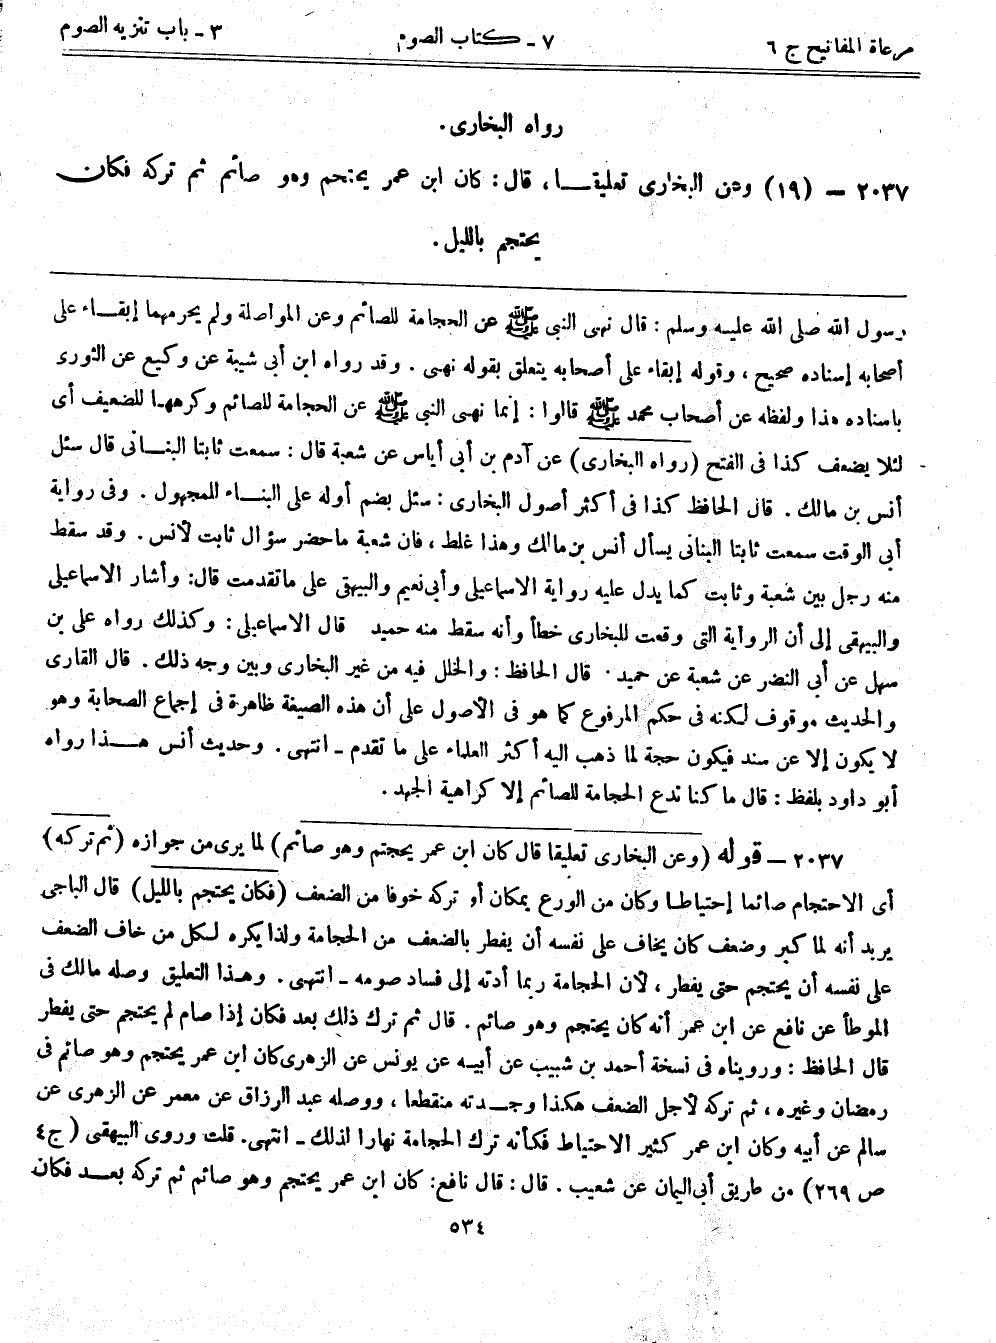 مرعاة المفاتيح ج ٦
٧ - كتاب الصوم
٣ - باب تنزيه الصوم
رواه البخارى.
٢٠٣٧ - (١٩) وعن البخارى تعليقـــا، قال: كان ابن عمر يحتجم وهو صائم ثم تركه فكان
يحتجم بالليل.
رسول الله صلى الله عليه وسلم: قال نهى النبى ﷺ عن الحجامة للصائم وعن المواصلة ولم يحرمهما إبقـاء على
أصحابه إسناده صحيح، وقوله إبقاء على أصحابه يتعلق بقوله نهى. وقد رواه ابن أبى شيبة عن وكيع عن الثورى
باسناده هذا ولفظه عن أصحاب محمد ﷺ قالوا: إنما نهى النبى ﷺ عن الحجامة للصائم وكرهها للضعيف أى
لئلا يضعف كذا فى الفتح (رواه البخارى) عن آدم بن أبى أياس عن شعبة قال: سمعت ثابتا البنـانى قال سئل
أنس بن مالك. قال الحافظ كذا فى أكثر أصول البخارى: سئل بضم أوله على البنـاء للمجهول. وفى رواية
أبى الوقت سمعت ثابتا البنانى يسأل أنس بن مالك وهذا غلط، فان شعبة ماحضر سؤال ثابت لأنس. وقد سقط
منه رجل بين شعبة وثابت كما يدل عليه رواية الاسماعيلى وأبى نعيم والبيهقى على ماتقدمت قال: وأشار الاسماعيلى
والبيهقى إلى أن الرواية التى وقعت للبخارى خطأ وأنه سقط منه حميد قال الاسماعيلى: وكذلك رواه على بن
سهل عن أبى النضر عن شعبة عن حميد. قال الحافظ: والخلل فيه من غير البخارى وبين وجه ذلك. قال القارى
والحديث موقوف لكنه فى حكم المرفوع كما هو فى الأصول على أن هذه الصيغة ظاهرة فى إجماع الصحابة وهو
لا يكون إلا عن سند فيكون حجة لما ذهب اليه أكثر العلماء على ما تقدم - انتهى. وحديث أنس هـــذا رواه
أبو داود بلفظ: قال ما كنا ندع الحجامة للصائم إلا كراهية الجهد.
٢٠٣٧ - قوله (وعن البخارى تعليقا قال كان ابن عمر يحجتم وهو صائم) لما يرى من جوازه (ثم تركه)
أى الاحتجام صائما إحتياطـا وكان من الورع بمكان أو تركه خوفا من الضعف (فكان يحتجم بالليل) قال الباجى
يريد أنه لما كبر وضعف كان يخاف على نفسه أن يفطر بالضعف من الحجامة ولذا يكره لكل من خاف الضعف
على نفسه أن يحتجم حتى يفطر، لأن الحجامة ربما أدته إلى فساد صومه - انتهى. وهـذا التعليق وصله مالك فى
الموطأ عن نافع عن ابن عمر أنه كان يحتجم وهو صائم. قال ثم ترك ذلك بعد فكان إذا صام لم يحتجم حتى يفطر
قال الحافظ: ورويناه فى نسخة أحمد بن شبيب عن أبيـه عن يونس عن الزهرى كان ابن عمر يحتجم وهو صائم فى
رمضان وغيره، ثم تركه لأجل الضعف هكذا وجــدته منقطعا، ووصله عبد الرزاق عن معمر عن الزهرى عن
سالم عن أبيه وكان ابن عمر كثير الاحتياط فكأنه ترك الحجامة نهارا لذلك - انتهى. قلت وروى البيهقى (ج ٤
ص ٢٦٩) من طريق أبى اليمان عن شعيب. قال: قال نافع: كان ابن عمر يحتجم وهو صائم ثم تركه بعــد فكان
٥٣٤